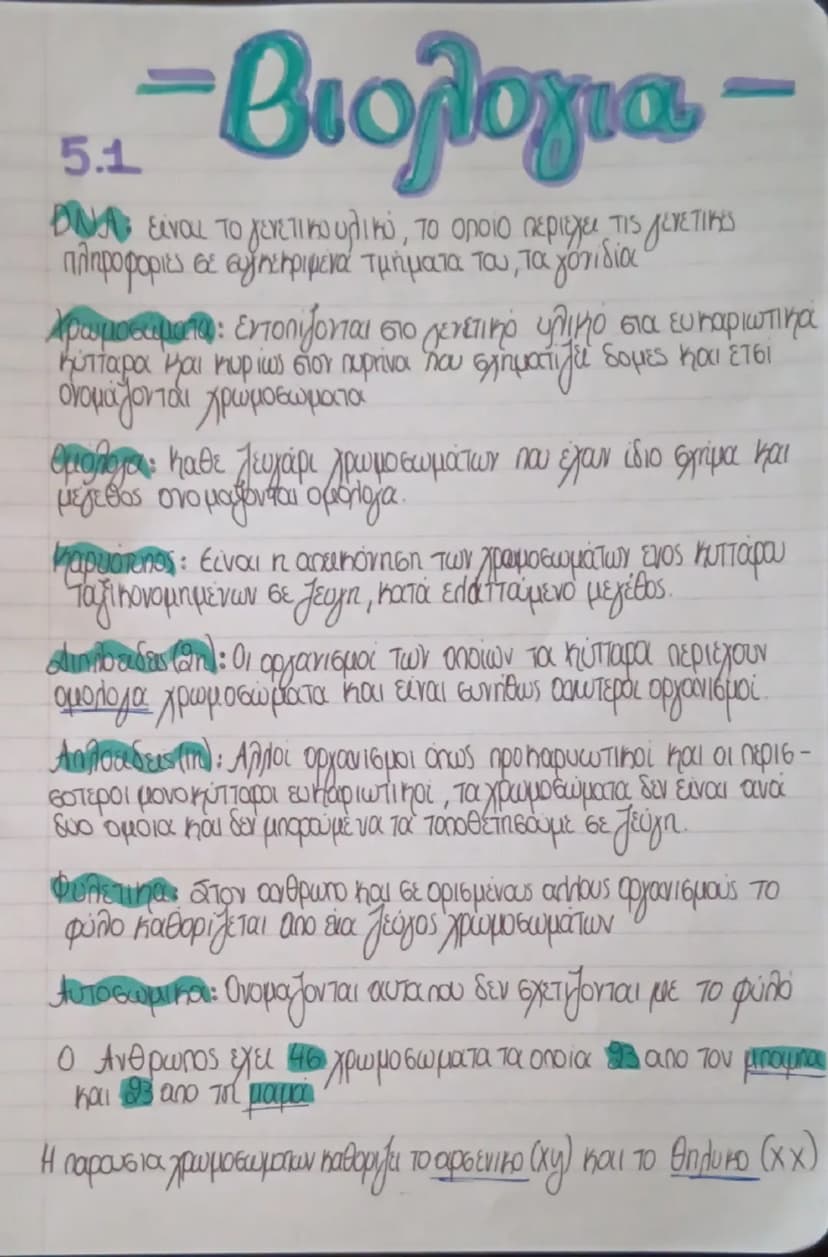 - Βιολογια -
5.1
DNA: είναι το γενετικο υλικό, το οποιο περιεχει τις γενετικές
πληροφορίες σε συγκεκριμενα τμήματα του, τα γονίδια
Χρωμοσώματα: Εντοπίζονται στο γενετικό υλικό στα ευκαριωτικά
κύτταρα και κυρίως στον πυρήνα που σχηματίζει δομες και ετσι
ονομάζονται χρωμοσωματα
Ομόλογα: καθε ζευγάρι χρωμοσωμάτων που εχουν ίδιο σχήμα και
μέγεθος ονομαζονται ομόλογα.
Καρυότυπος: Είναι η απεικόνηση των χρωμοσωμάτων ενος κυττάρου
ταξικονομημένων σε ζευγη, κατά ελαττώμενο μεγέθος.
Διπλοειδεις (2n): Οι οργανισμοί των οποίων τα κύτταρα περιεχουν
ομολογα χρωμοσώματα και είναι συνήθως ανωτεροι οργανισμοί.
Απλοειδεις (n): Αλλοι οργανισμοι όπως προκαρυωτικοί και οι περισ-
σοτεροι μονοκύτταροι ευκαριωτικοί, τα χρωμοσώματα δεν είναι ανά
δυο ομοια και δεν μπορούμε να τα τοποθετησουμε σε ζεύγη.
Φυλετικα: Στον ανθρωπο και σε ορισμένους αλλους οργανισμούς το
φύλο καθορίζεται απο ενα ζεύγος χρωμοσωμάτων
Αυτοσωμικα: Ονομαζονται αυτα που δεν σχετιζονται με το φύλό
Ο Ανθρωπος εχει 46 χρωμοσωματα τα οποια 23 απο τον μπαμπα
και 23 απο τη μαμά
Η παρουσια χρωμοσωματων καθοριζει το αρσενικο (xy) και το θηλυκο (xx)